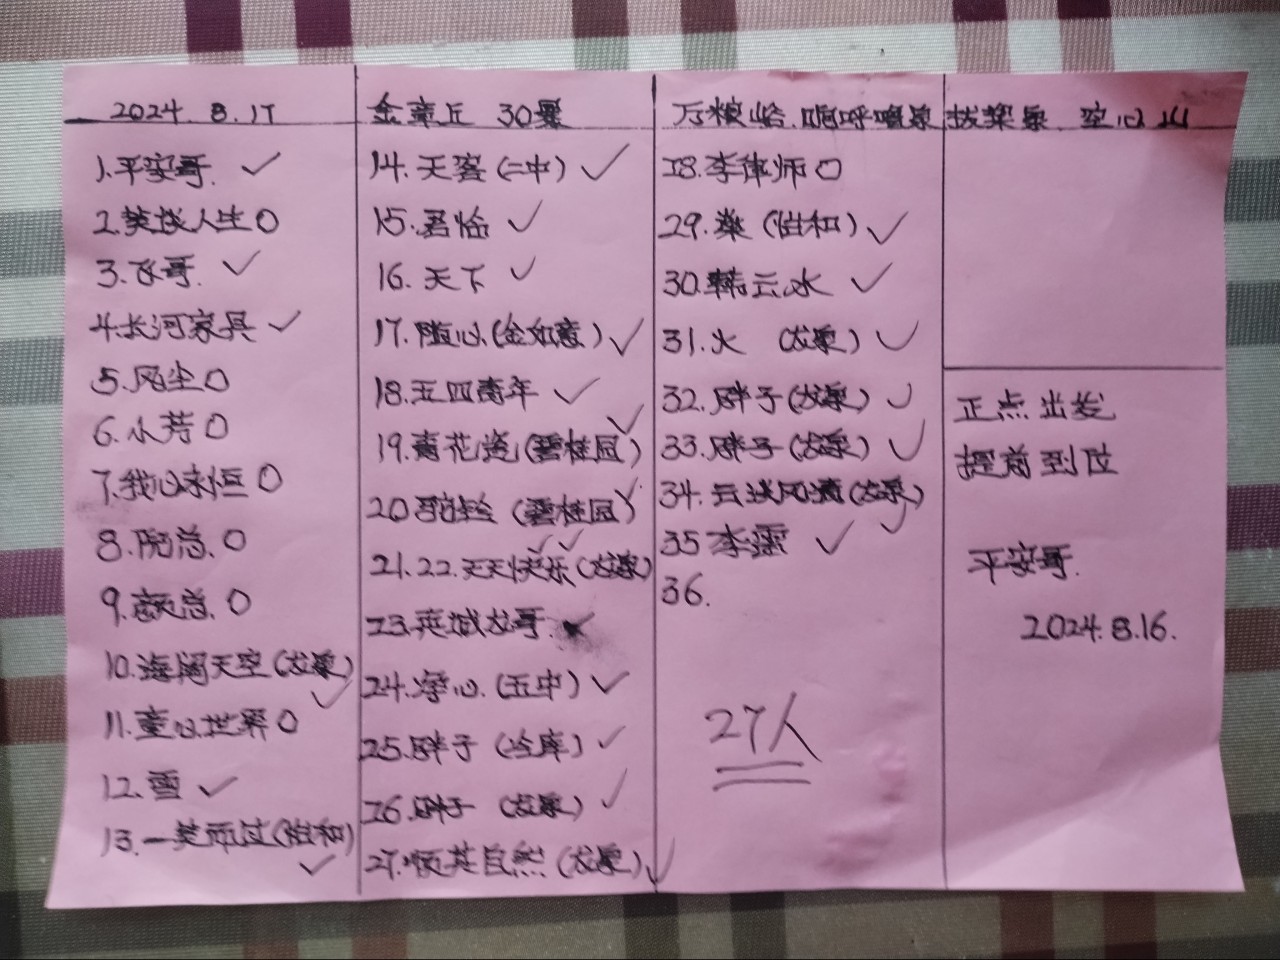 2024.8.17
1.平安哥. ✓
2.笑谈人生O
3.飞哥. ✓
4.长河家具 ✓
5.风尘O
6.小芳O
7.我心永恒O
8.阮总.O
9.颜总.O
10.海阔天空(龙泉)
✓
11.童心世界O
12.雪 ✓
13.一笑而过(怡和)
✓
金章丘 30景
14.天客(二中) ✓
15.君临 ✓
16.天下 ✓
17.随心.(金如意) ✓
18.五四青年 ✓
19.青花瓷(碧桂园) ✓
20 (碧桂园) ✓
21.22.天天快乐(龙泉) ✓✓
23.英城龙哥. ✓
24.净心.(五中) ✓
25.胖子(冷库) ✓
26.胖子(龙泉) ✓
27.顺其自然(龙泉) ✓
万粮峪.嗚呼嘴泉 拔槊泉 空心山
28.李律师O
29.燊(怡和) ✓
30.韩云水 ✓
31.火 (龙泉) ✓
32.胖子(龙泉) ✓
33.胖子(龙泉) ✓
34.云淡风清(龙泉)
✓
35 李 ✓
36.
27人
正点出发
提前到位
平安哥.
2024.8.16.